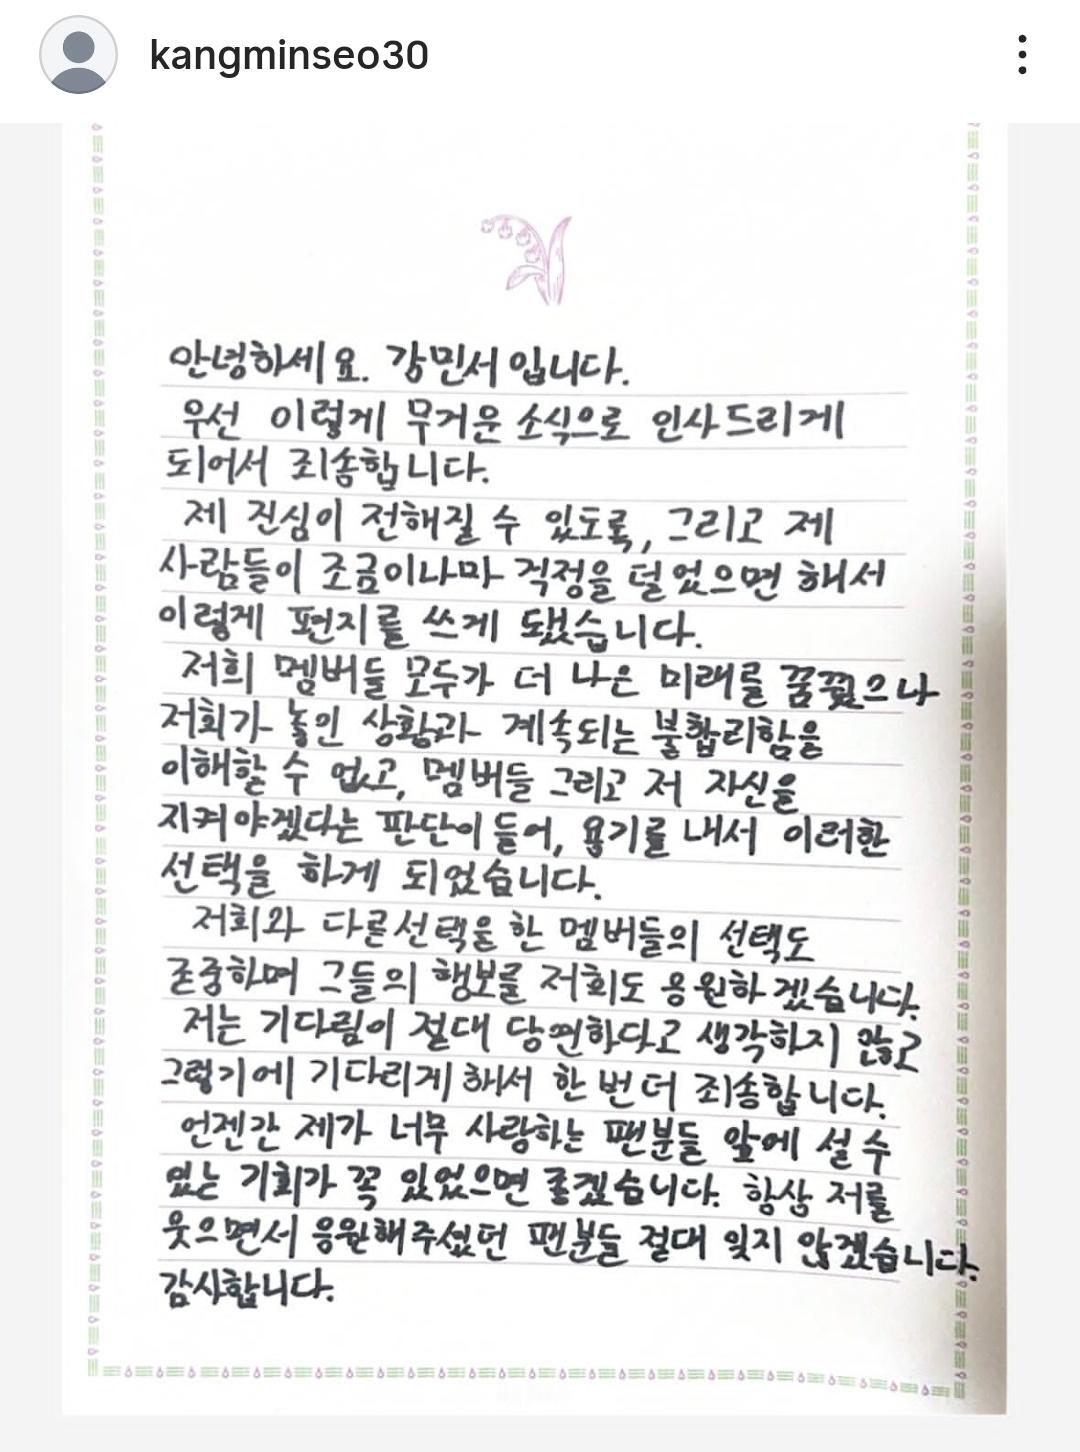 kangminseo30
안녕하세요. 강민서입니다.
우선 이렇게 무거운 소식으로 인사드리게
되어서 죄송합니다.
제 진심이 전해질 수 있도록, 그리고 제
사람들이 조금이나마 걱정을 덜었으면 해서
이렇게 편지를 쓰게 됐습니다.
저희 멤버들 모두가 더 나은 미래를 꿈꿨으나
저희가 놓인 상황과 계속되는 불합리함을
이해할 수 없고, 멤버들 그리고 저 자신을
지켜야겠다는 판단이 들어, 용기를 내서 이러한
선택을 하게 되었습니다.
저희와 다른 선택을 한 멤버들의 선택도
존중하며 그들의 행보를 저희도 응원하겠습니다.
저는 기다림이 절대 당연하다고 생각하지 않고
그렇기에 기다리게 해서 한 번 더 죄송합니다.
언젠간 제가 너무 사랑하는 팬분들 앞에 설 수
있는 기회가 꼭 있었으면 좋겠습니다. 항상 저를
웃으면서 응원해주셨던 팬분들 절대 잊지 않겠습니다.
감사합니다.